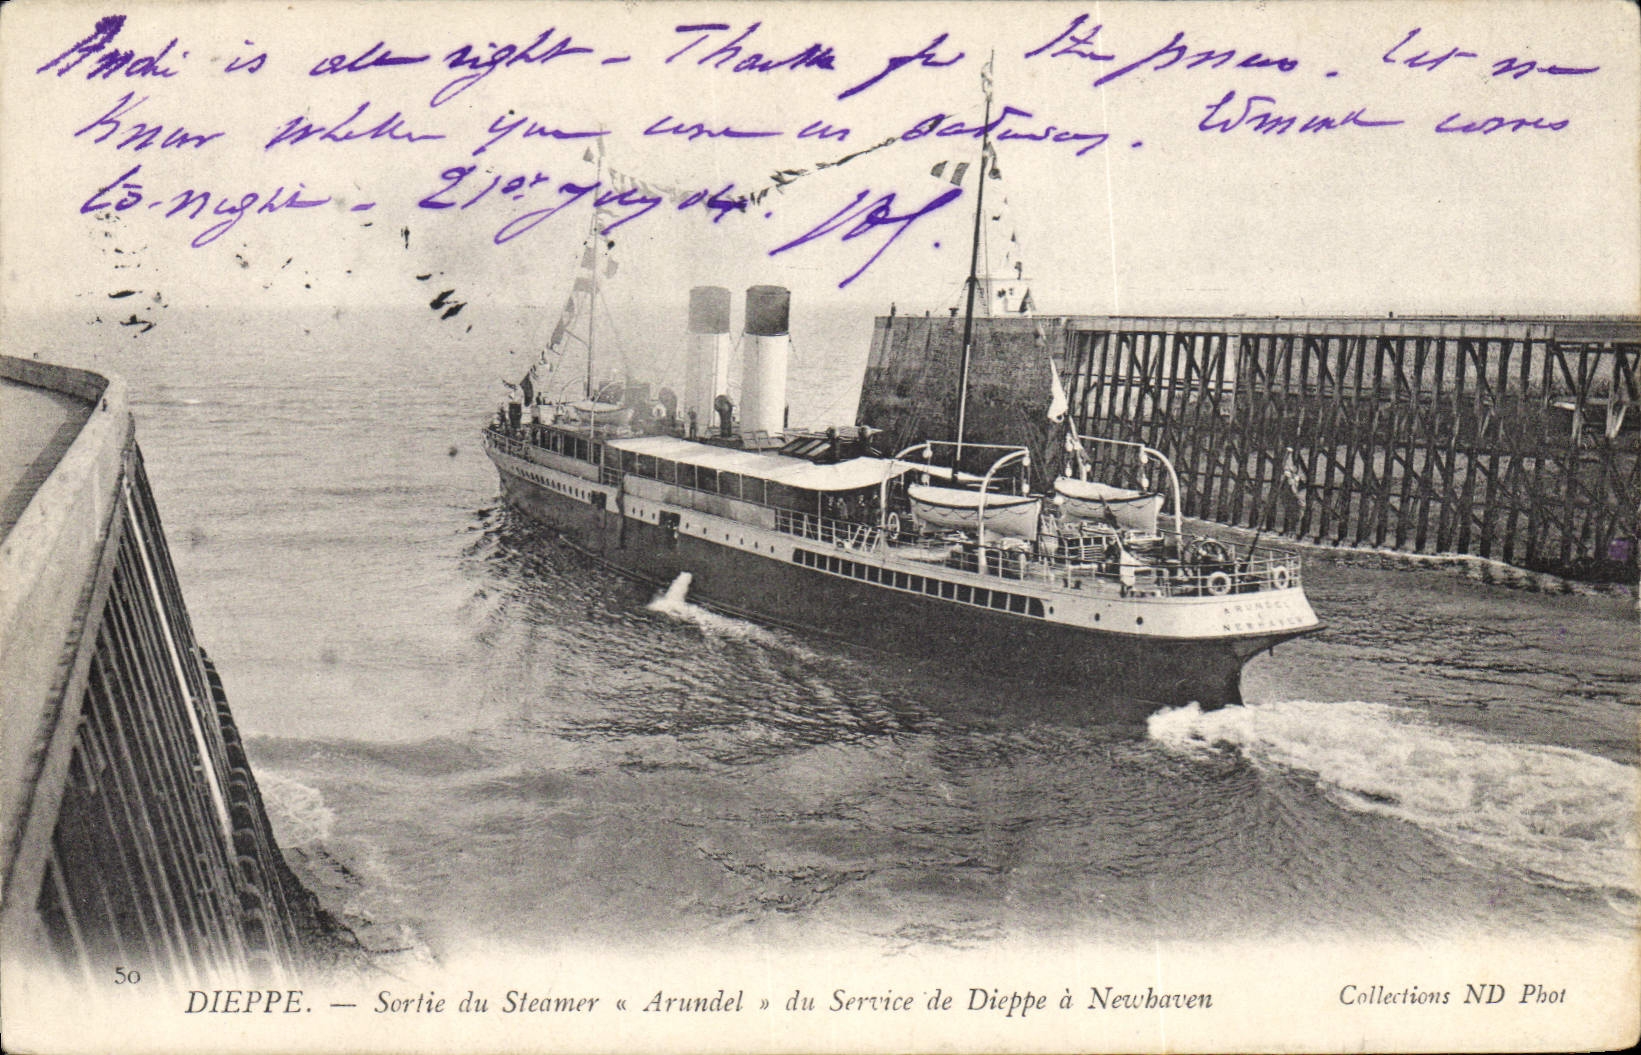 André is all right - Thanks for the pneus. Let me
know whether you come on Saturday. Edmond comes
to-night - 21st July 04.
ARUNDEL
NEWHAVEN
50
DIEPPE. — Sortie du Steamer « Arundel » du Service de Dieppe à Newhaven
Collections ND Phot